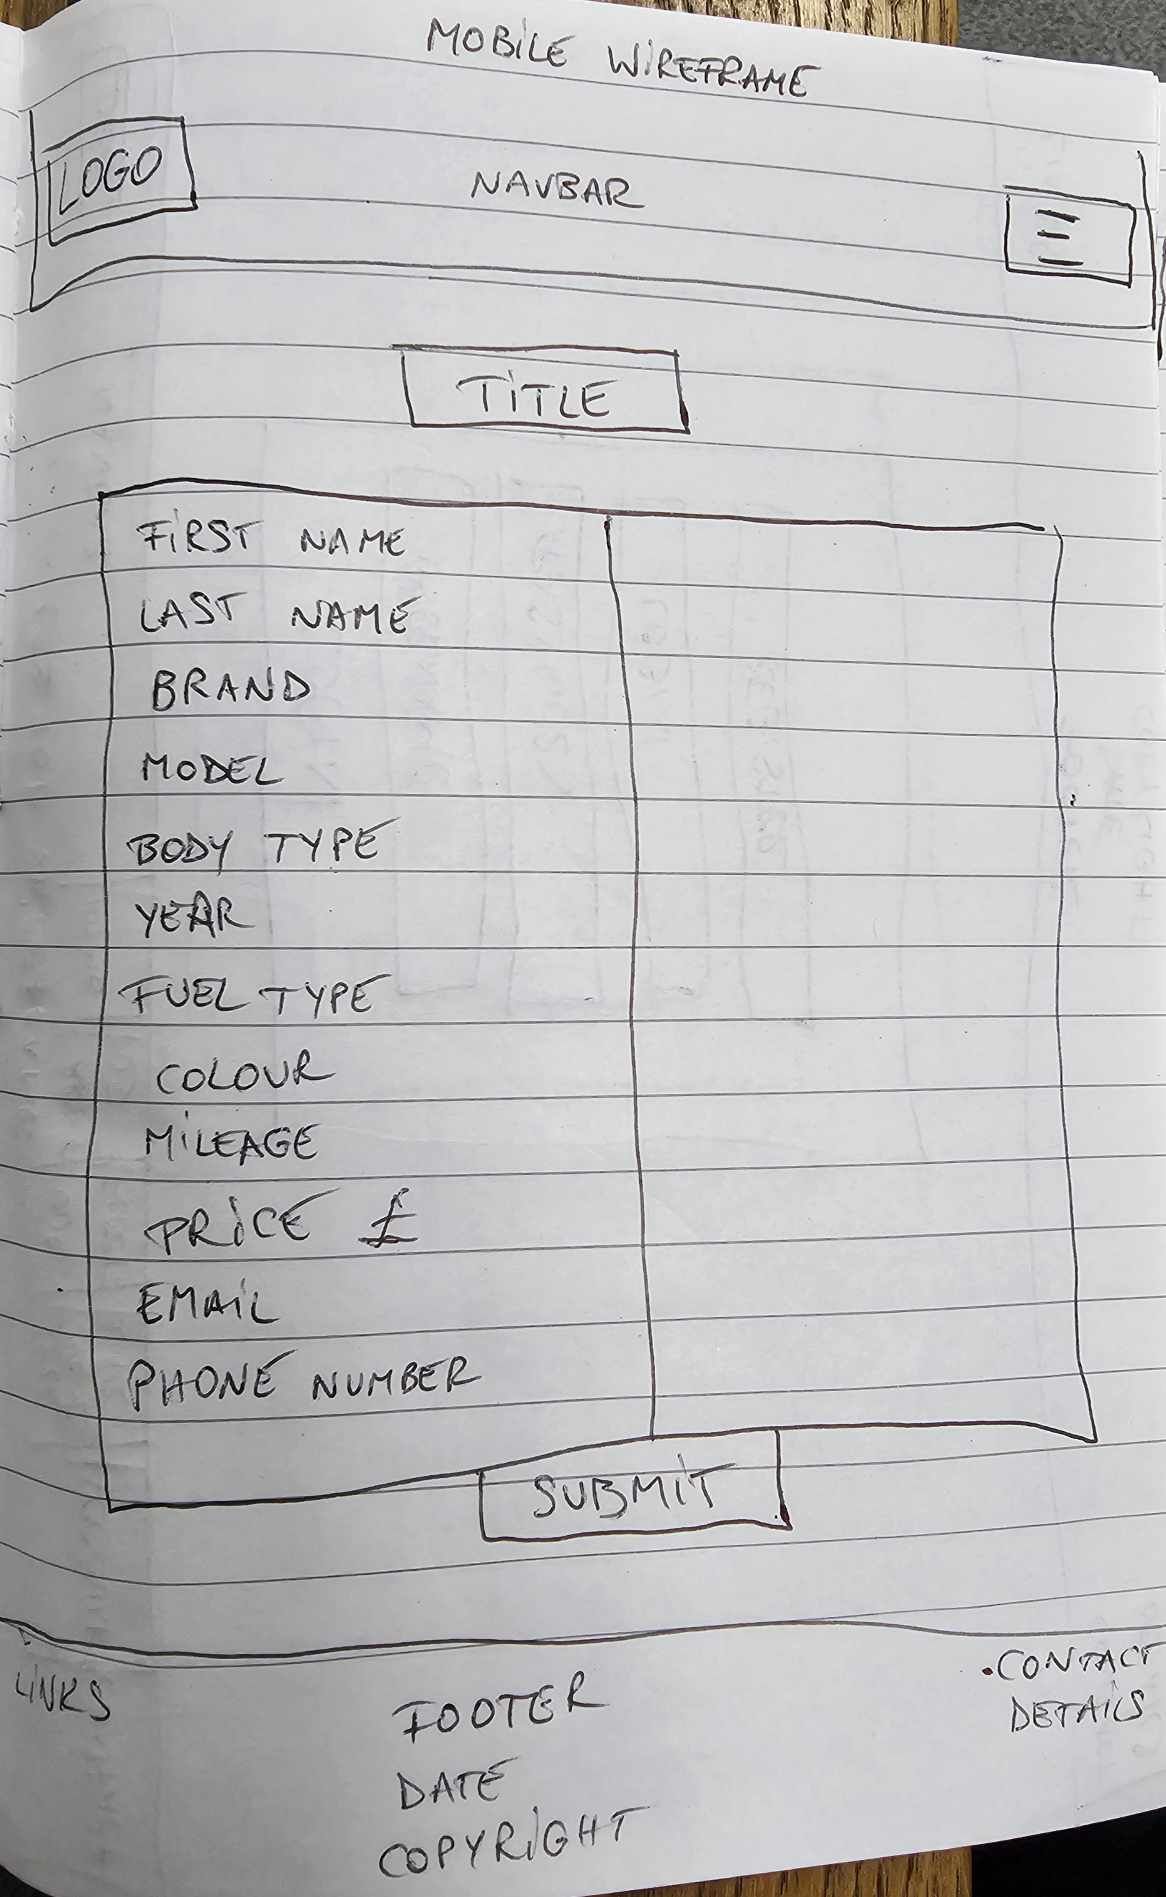 MOBILE WIREFRAME
LOGO
NAVBAR
TITLE
FIRST NAME
LAST NAME
BRAND
MODEL
BODY TYPE
YEAR
FUEL TYPE
COLOUR
MILEAGE
PRICE £
EMAIL
PHONE NUMBER
SUBMIT
LINKS
FOOTER
DATE
COPYRIGHT
.CONTACT
DETAILS